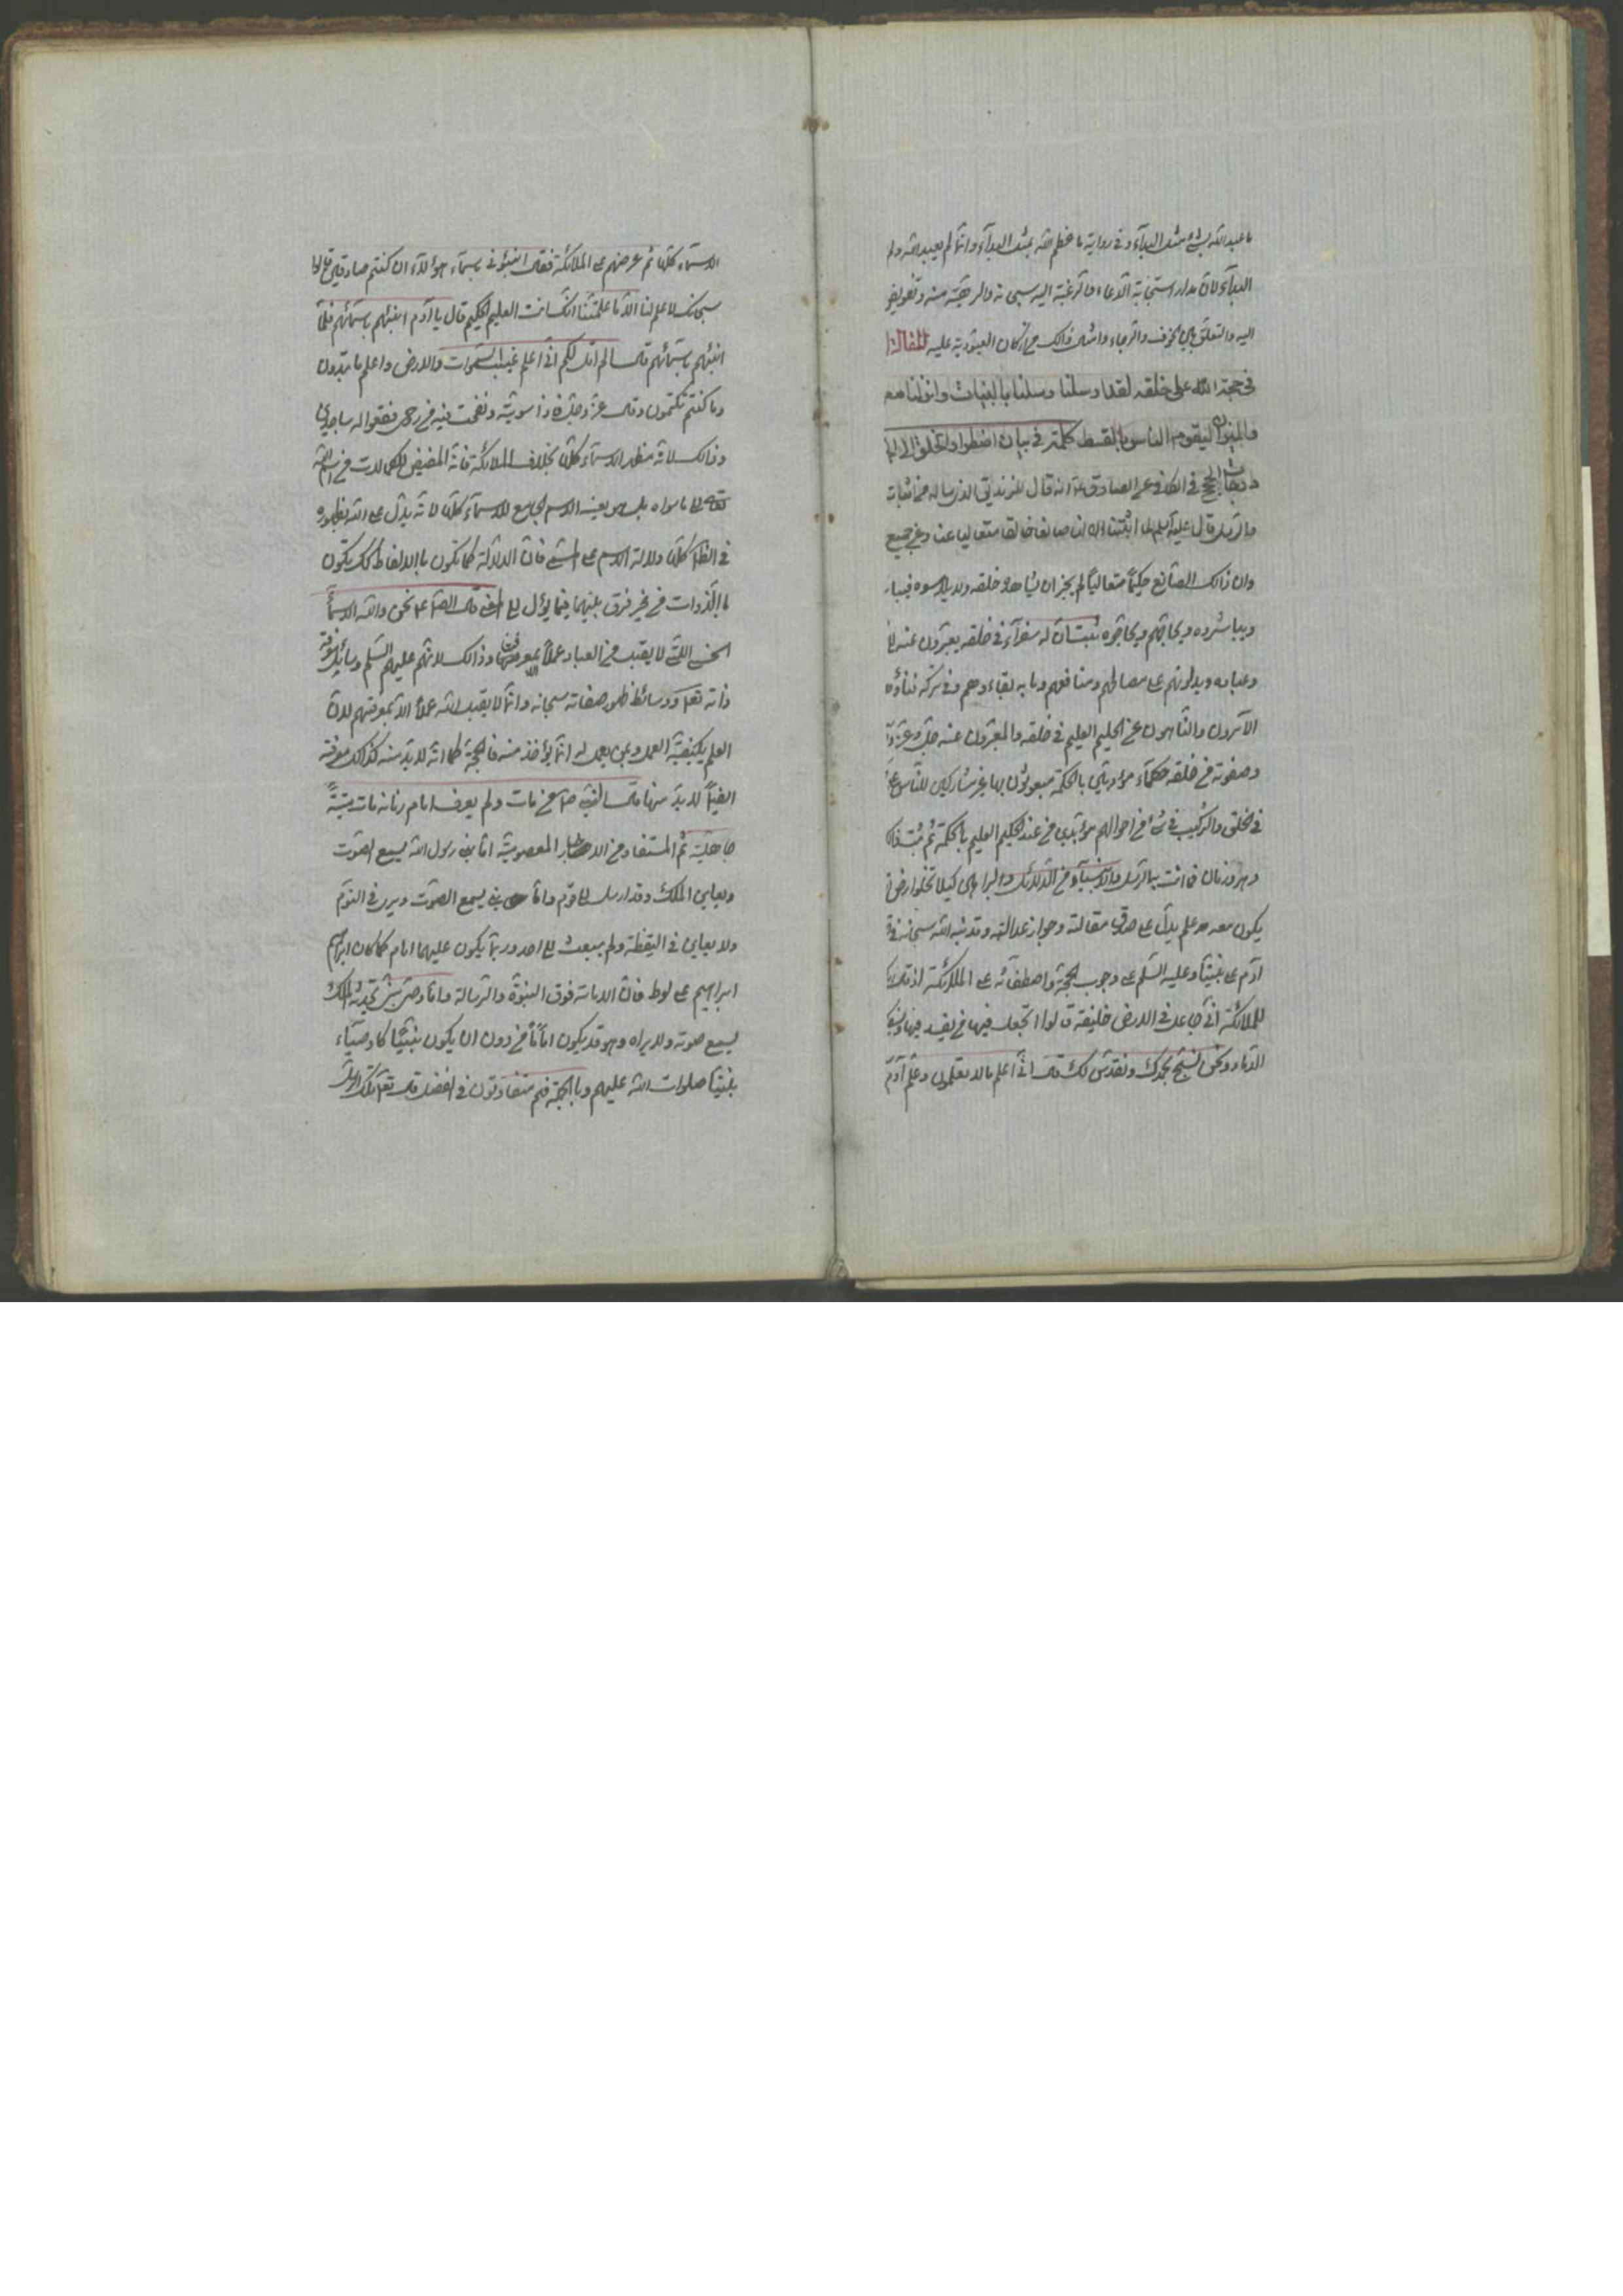 ما عبد الله بشئ مثل البدآء وفى رواية ما عظم الله بمثل البدآء وانما لم يعبد الله ولم
البدآء لان مدار استجابة الدعاء والرغبة اليه سبحانه والرهبة منه وتفويض
اليه والتعلق بين الخوف والرجاء وامثال ذالك من اركان العبودية عليه المقالة
فى حجة الله على خلقه لقد ارسلنا رسلنا بالبينات وانزلنا معهم
والميزان ليقوم الناس بالقسط كلمة فى بيان اضطرار الخلق الى
الحج فى الكافى عن الصادق ع انه قال للزنديق الذى ساله من اثبات
والرسل قال عليه السلم انا لما اثبتنا ان لنا صانعا خالقا متعاليا عنا وعن جميع
وان ذالك الصانع حكيماً متعالياً لم يجز ان يشاهده خلقه ولا يلامسوه فيبا
ويباشروه ويحاجهم ويحاجوه ثبت ان له سفرآء فى خلقه يعبرون عنه
وعباده ويدلونهم على مصالحهم ومنافعهم وما به بقاءهم وفى تركه فناؤه
الآمرون والناهون عن الحكيم العليم فى خلقه والمعبرون عنه جل وعز
وصفوته من خلقه حكمآء مؤدبين بالحكمة مبعوثون بها غير مشاركين للناس
فى الخلق والتركيب فى شئ من احوالهم مؤيدين من عند الحكيم العليم بالحكمة ثم ثبت ذلك
دهر وزمان مما اتت به الرسل والانبيآء من الدلائل والبراهين كيلا تخلوا ارض
يكون معه علم يدل على صدق مقالته وجواز عدالته وقد نبه الله سبحانه فى
آدم على نبينا وعليه السلم على وجوب الحجة واصطفآئه على الملائكة اذ قال
للملائكة انى جاعل فى الارض خليفة قالوا اتجعل فيها من يفسد فيها ويسفك
الدماء ونحن نسبح بحمدك ونقدس لك قال انى اعلم ما لا تعلمون وعلم آدم
الاسمآء كلها ثم عرضهم على الملائكة فقال انبئونى باسمآء هؤلآء ان كنتم صادقين قالوا
سبحانك لا علم لنا الا ما علمتنا انك انت العليم الحكيم قال يا آدم انبئهم باسمآئهم فلما
انبئهم باسمآئهم قال الم اقل لكم انى اعلم غيب السموات والارض واعلم ما تبدون
وما كنتم تكتمون وقال عز وجل فاذا سويته ونفخت فيه من روحى فقعوا له ساجدين
وذالك لانه مظهر الاسمآء كلها بخلاف الملائكة فانه المفيض للكمالات من اسم الله
تعالى الى ما سواه بل هو بعينه الاسم الجامع للاسمآء كلها لانه يدل على الله بظهوره
فى المظاهر كلها دلالة الاسم على المسمى فان الدلالة كما تكون بالالفاظ كذلك يكون
بالذوات من غير فرق بينهما فيما يؤل الى المعنى قال الصادق ع نحن والله الاسمآء
الحسنى التى لا يقبل من العباد عملاً الا بمعرفتنا وذالك لانهم عليهم السلم وسائل معرفة
ذاته تعالى ووسائط ظهور صفاته سبحانه وانما لا يقبل الله عملاً الا بمعرفتهم لان
العلم بكيفية العمل وبمن يعمل له انما يؤخذ منه فالحجة كما انه لا بد منه كذالك معرفته
ايضاً لا بد منها قال النبى ص من مات ولم يعرف امام زمانه مات ميتةً
جاهلية ثم المستفاد من الاخبار المعصومية ان رسول الله يسمع الصوت
ويعاين الملك وقد ارسل الى قوم وان نبى يسمع الصوت ويرى فى النوم
ولا يعاين فى اليقظة ولم يبعث الى احد وربما يكون عليهما امام كما كان ابراهيم
ابراهيم على لوط فان الامامة فوق النبوة والرسالة وانا وصى نبى تحدثه الملك
يسمع صوته ولا يراه وهو قد يكون اماماً من دون ان يكون نبيًّا كاوصيآء
نبينا صلوات الله عليهم وبالجملة فهم متفاوتون فى الفضل قال تعالى تلك الرسل